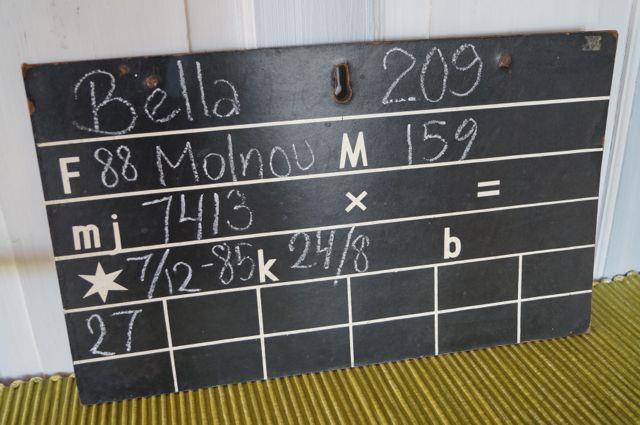 Bella 209
F 88 Molnou M 159
mj 7413 × =
★ 7/12-85 k 24/8 b
27